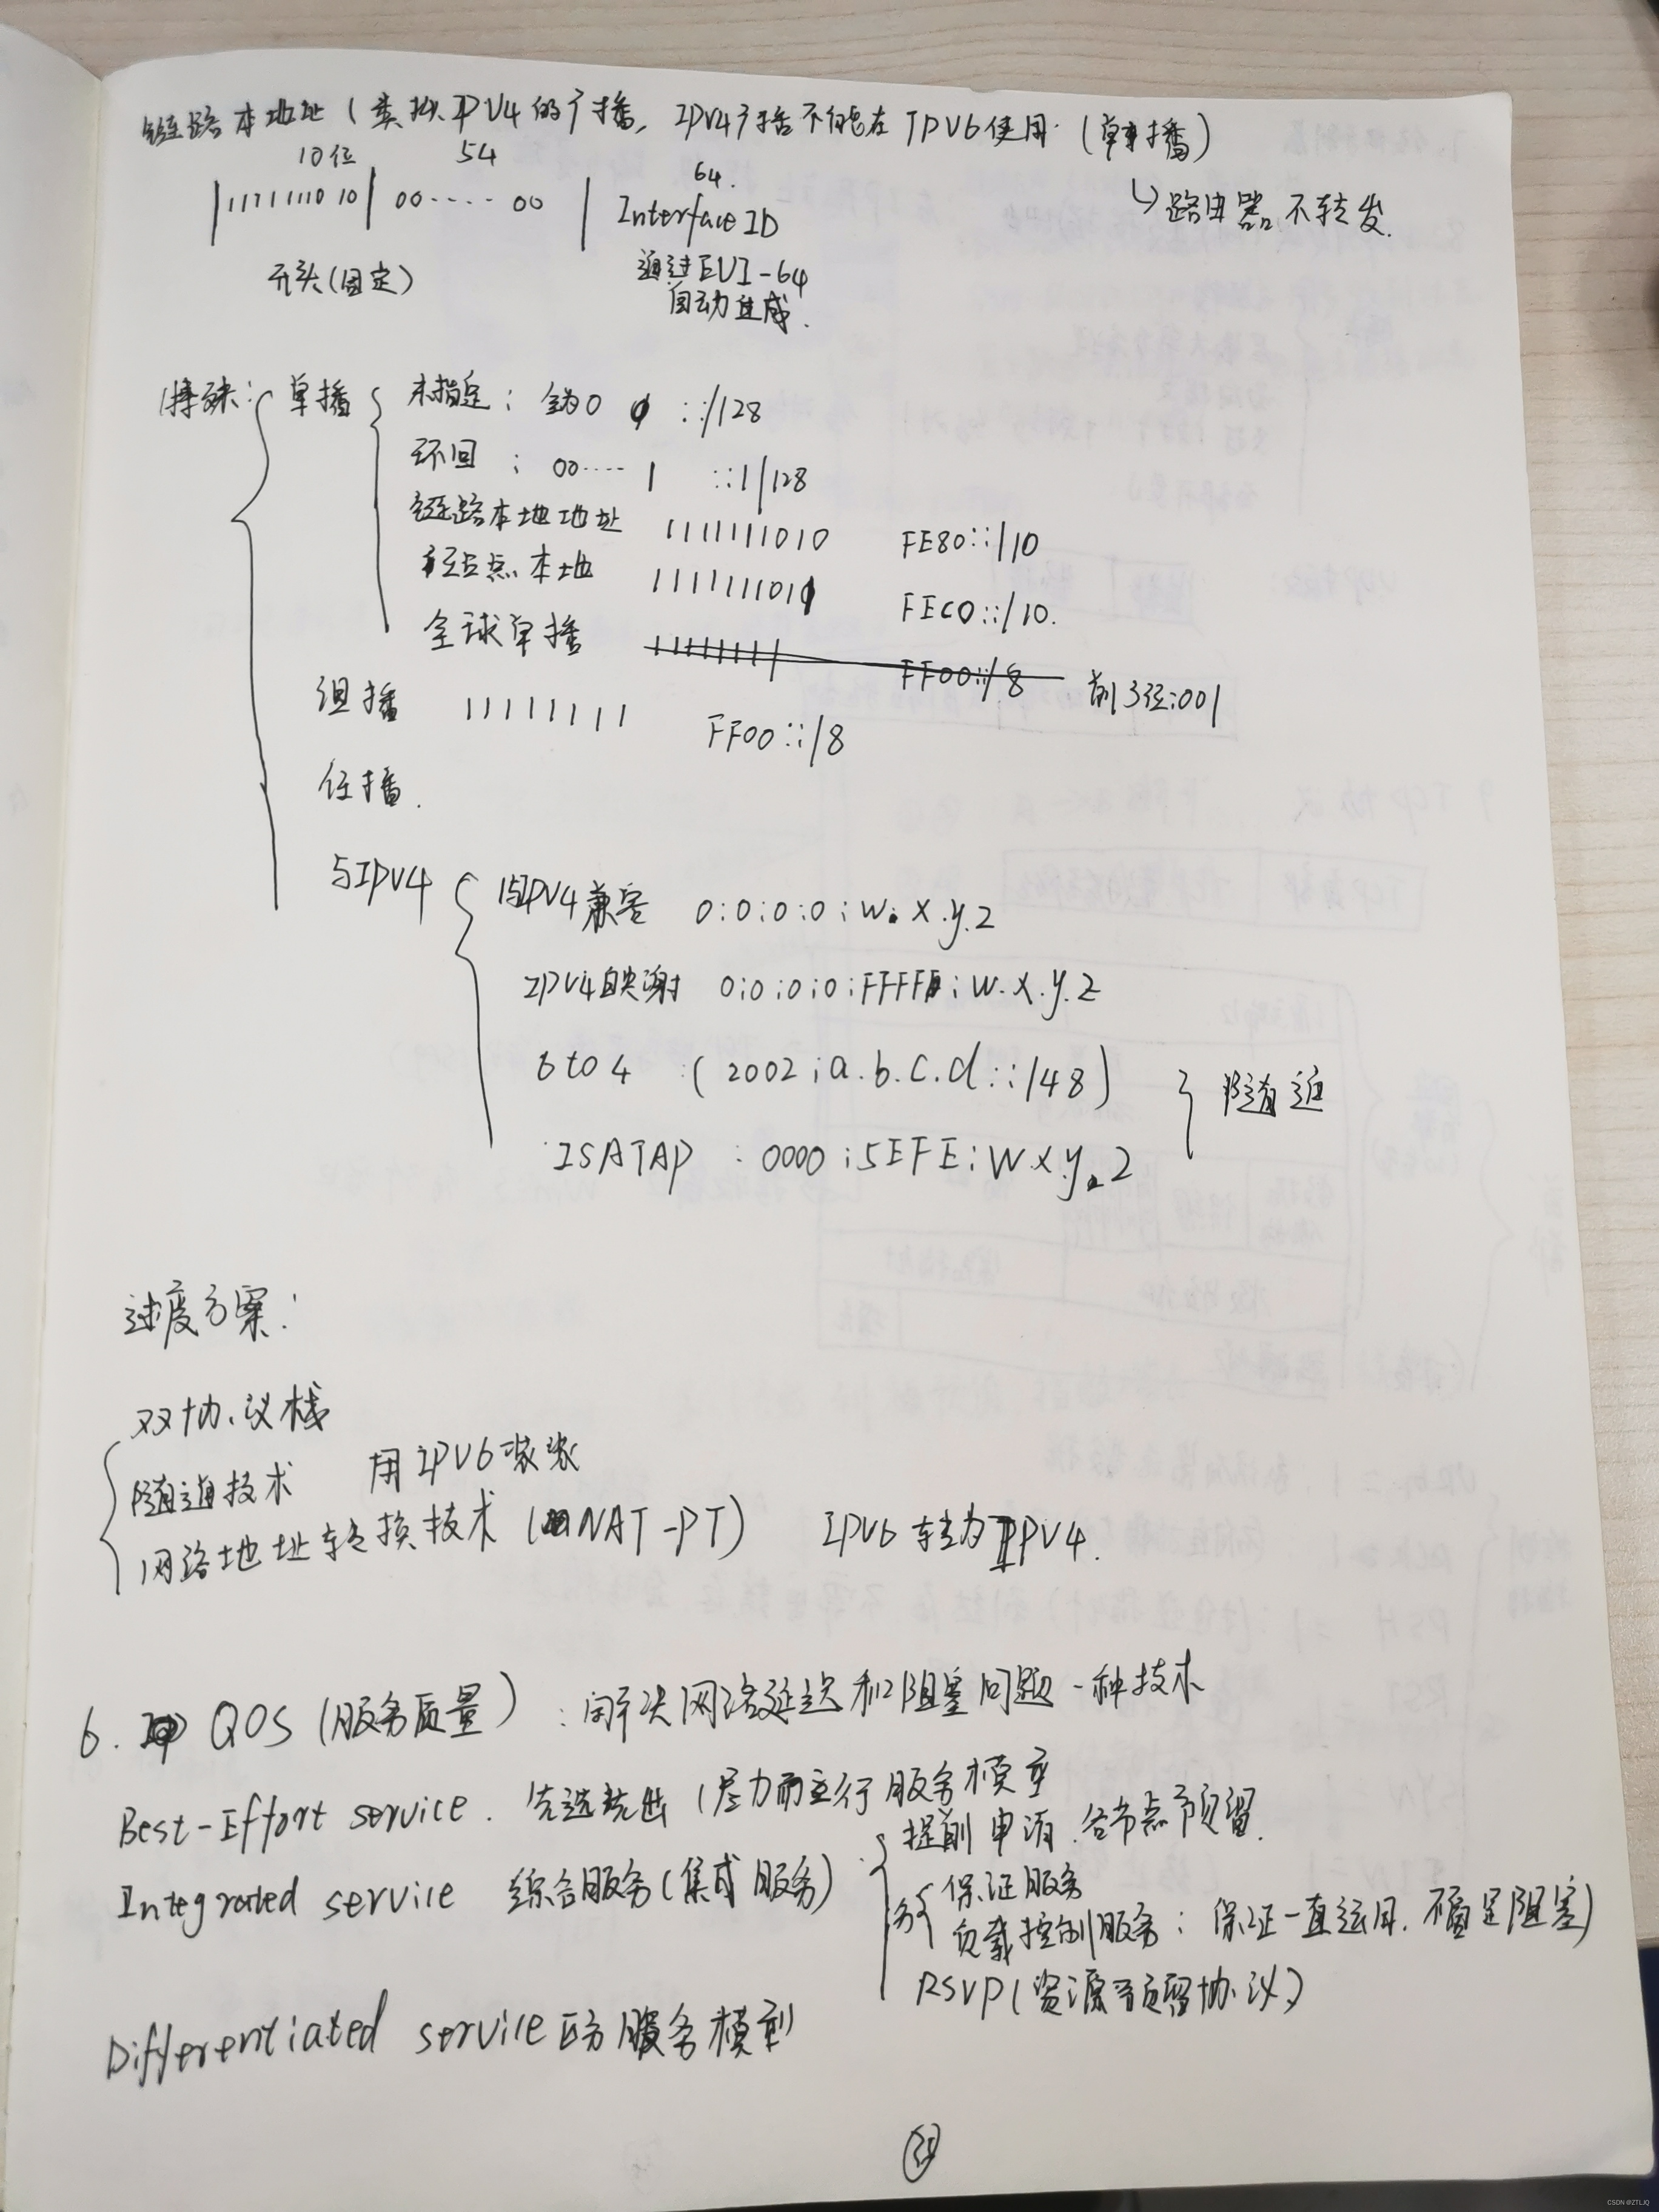 链路本地址(类拟IPV4的广播,IPV4广播不能在IPV6使用.(单播)
10位 54 64.
↳路由器不转发.
|1111111010|00·····00| Interface ID
开头(固定) 通过EUI-64
自动生成.
特殊: 单播 未指定: 全为0 ::/128
环回: 00····1 ::1/128
链路本地地址 1111111010 FE80::/10
站点本地 1111111011 FEC0::/10.
全球单播 11111111 FF00::/8 前3位:001
组播 11111111 FF00::/8
任播.
与IPV4 与IPV4兼容 0:0:0:0:w.x.y.z
IPV4映射 0:0:0:0:FFFF:w.x.y.z
6to4 :(2002:a.b.c.d::/48) 隧道
ISATAP :0000:5EFE:w.x.y.z
过度方案:
双协议栈
隧道技术 用IPV6装装
网络地址转换技术(NAT-PT) IPV6转为IPV4.
6. QOS(服务质量):解决网络延迟和阻塞问题一种技术
Best-Effort service. 先进先出(尽力而为行服务模型
提前申请.各节点预留.
Integrated service 综合服务(集成服务)
保证服务
负载控制服务:保证一直运用.不管是阻塞)
RSVP(资源预留协议)
Differentiated service区分服务模型
CSDN @ZTLJQ